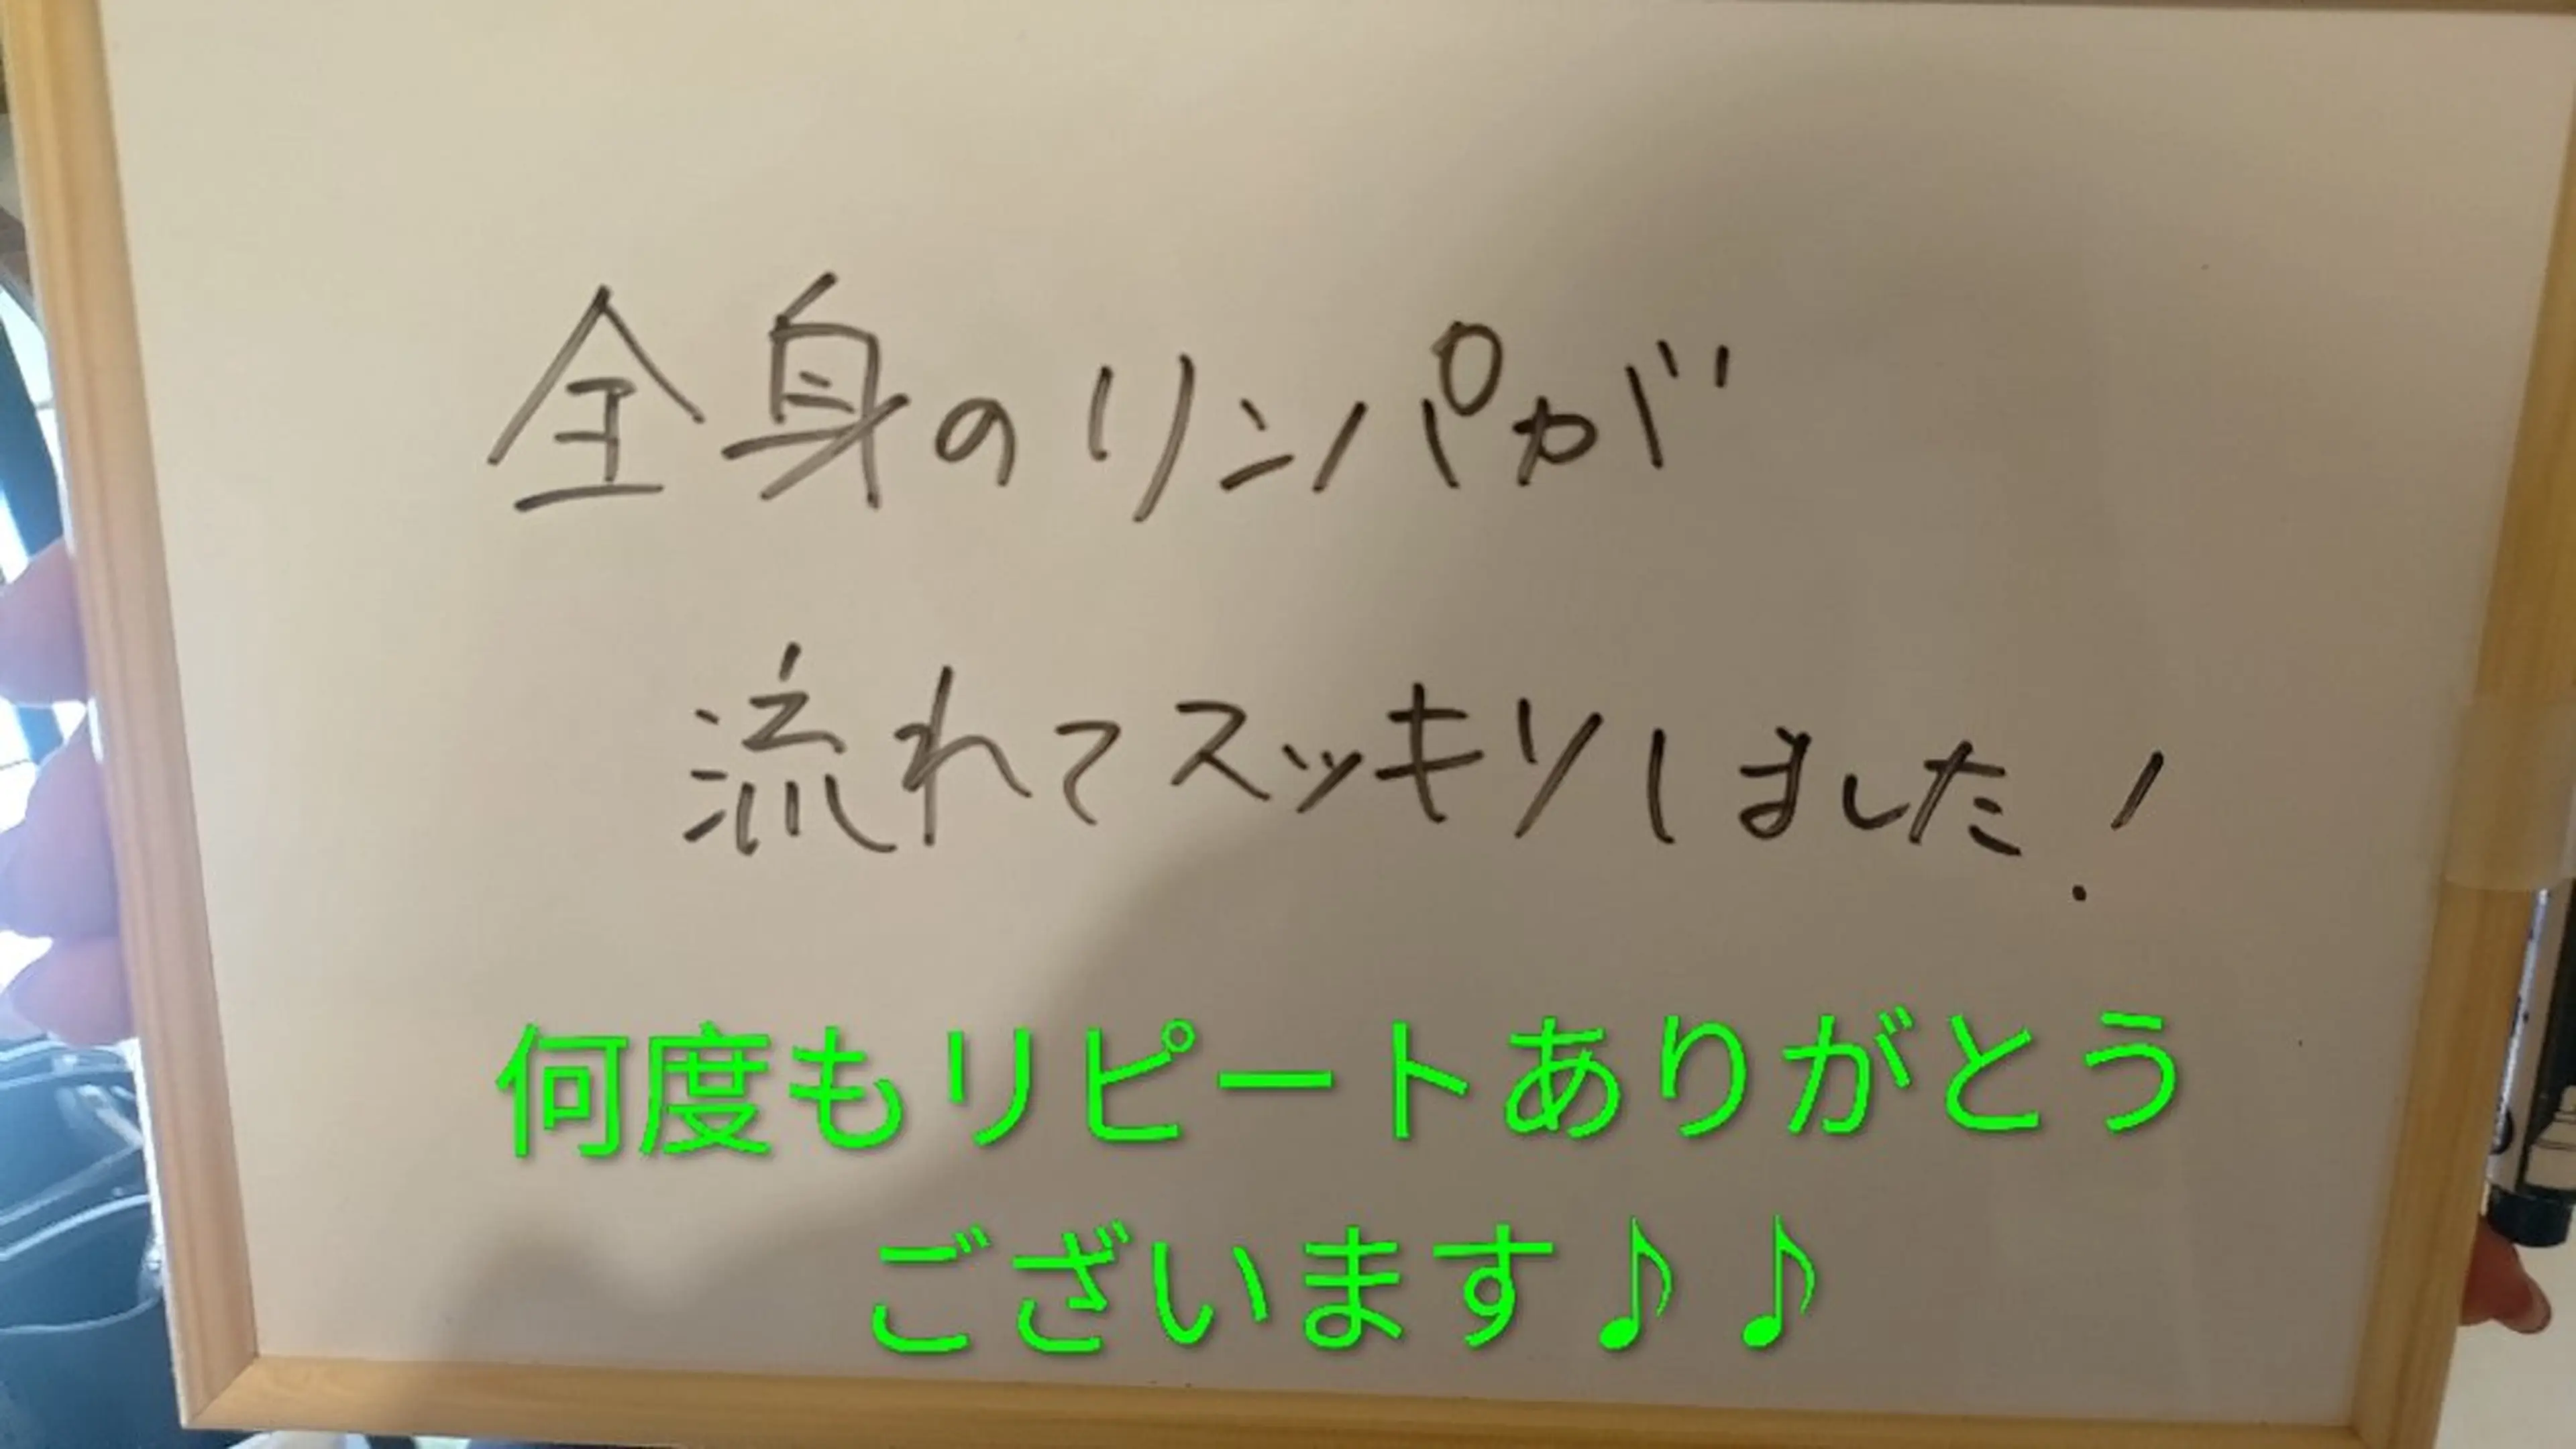 全身のリンパが
流れてスッキリしました!
何度もリピートありがとう
ございます♪♪